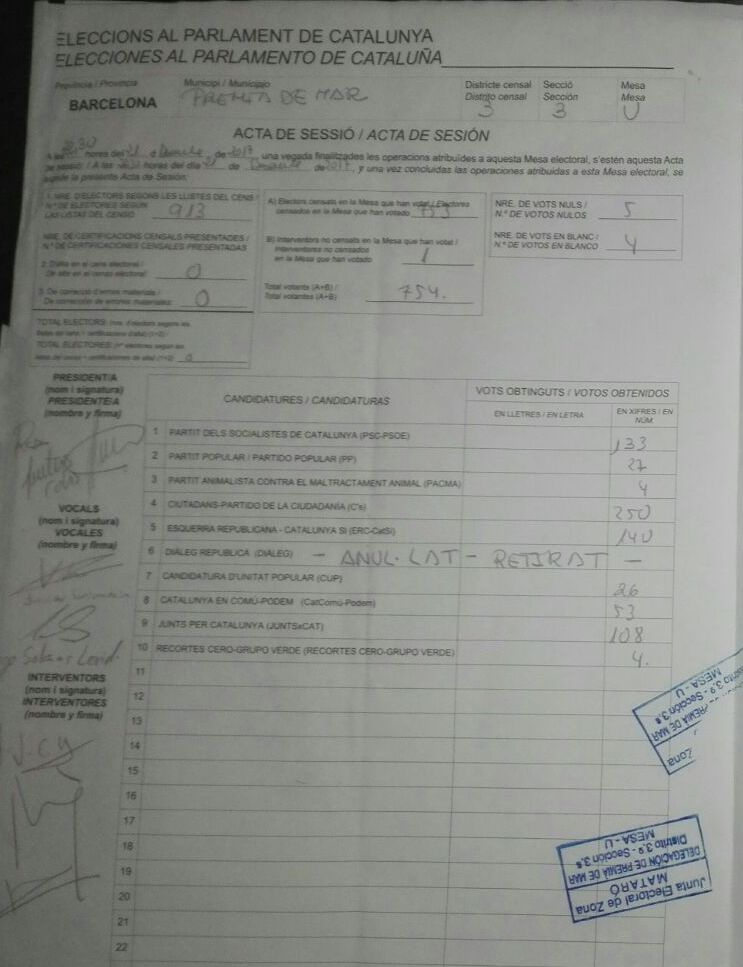 ELECCIONS AL PARLAMENT DE CATALUNYA
ELECCIONES AL PARLAMENTO DE CATALUÑA
Provincia / Provincia
BARCELONA
Municipi / Municipio
PREMIA DE MAR
Districte censal
Distrito censal
3
Secció
Sección
3
Mesa
Mesa
U
ACTA DE SESSIÓ / ACTA DE SESIÓN
A les hores del d de 2017, una vegada finalitzades les operacions atribuïdes a aquesta Mesa electoral, s'estén aquesta Acta
de sessió. / A las horas del día de de 2017, y una vez concluidas las operaciones atribuidas a esta Mesa electoral, se
la presente Acta de Sesión.
1. NRE. D'ELECTORS SEGONS LES LLISTES DEL CENS /
N.º DE ELECTORES SEGÚN
LAS LISTAS DEL CENSO 913
NRE. DE CERTIFICACIONS CENSALS PRESENTADES /
N.º DE CERTIFICACIONES CENSALES PRESENTADAS
2. D'alta en el cens electoral /
De alta en el censo electoral: 0
3. De correcció d'errors materials /
De corrección de errores materiales: 0
TOTAL ELECTORS: (nre. d'electors segons les
TOTAL ELECTORES: (nº electores según las
A) Electors censats en la Mesa que han votat / Electores
censados en la Mesa que han votado 753
B) Interventors no censats en la Mesa que han votat /
Interventores no censados
en la Mesa que han votado 1
Total votants (A+B) /
Total votantes (A+B) 754.
NRE. DE VOTS NULS /
N.º DE VOTOS NULOS 5
NRE. DE VOTS EN BLANC /
N.º DE VOTOS EN BLANCO 4
PRESIDENT/A
(nom i signatura)
PRESIDENTE/A
(nombre y firma)
VOCALS
(nom i signatura)
VOCALES
(nombre y firma)
INTERVENTORS
(nom i signatura)
INTERVENTORES
(nombre y firma)
CANDIDATURES / CANDIDATURAS
VOTS OBTINGUTS / VOTOS OBTENIDOS
EN LLETRES / EN LETRA
EN XIFRES / EN
NÚM.
1 PARTIT DELS SOCIALISTES DE CATALUNYA (PSC-PSOE) 133
2 PARTIT POPULAR / PARTIDO POPULAR (PP) 27
3 PARTIT ANIMALISTA CONTRA EL MALTRACTAMENT ANIMAL (PACMA) 4
4 CIUTADANS-PARTIDO DE LA CIUDADANÍA (C's) 250
5 ESQUERRA REPUBLICANA - CATALUNYA SÍ (ERC-CatSí) 140
6 DIÀLEG REPUBLICÀ (DIÀLEG) - ANUL·LAT - RETIRAT -
7 CANDIDATURA D'UNITAT POPULAR (CUP) 26
8 CATALUNYA EN COMÚ-PODEM (CatComú-Podem) 53
9 JUNTS PER CATALUNYA (JUNTSxCAT) 108
10 RECORTES CERO-GRUPO VERDE (RECORTES CERO-GRUPO VERDE) 4.
11
12
13
14
15
16
17
18
19
20
21
22
Zona
PREMIÀ DE MAR
Distrito 3.º - Sección 3.ª
MESA - U
Junta Electoral de Zona
MATARÓ
DELEGACIÓN DE PREMIÀ DE MAR
Distrito 3.º - Sección 3.ª
MESA - U